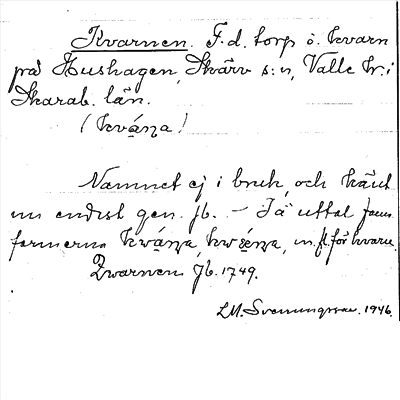 Kvarnen. F.d. torp o. kvarn
på Hushagen, Skärv s:n, Valle hr. i
Skarab. län.
(kvána)
Namnet ej i bruk, och känt
nu endast gen. jb. – Jä uttal
formerna kvána, m. fl. för kvarn.
Qvarnen Jb. 1749.
L.M. Svenungsson. 1946.